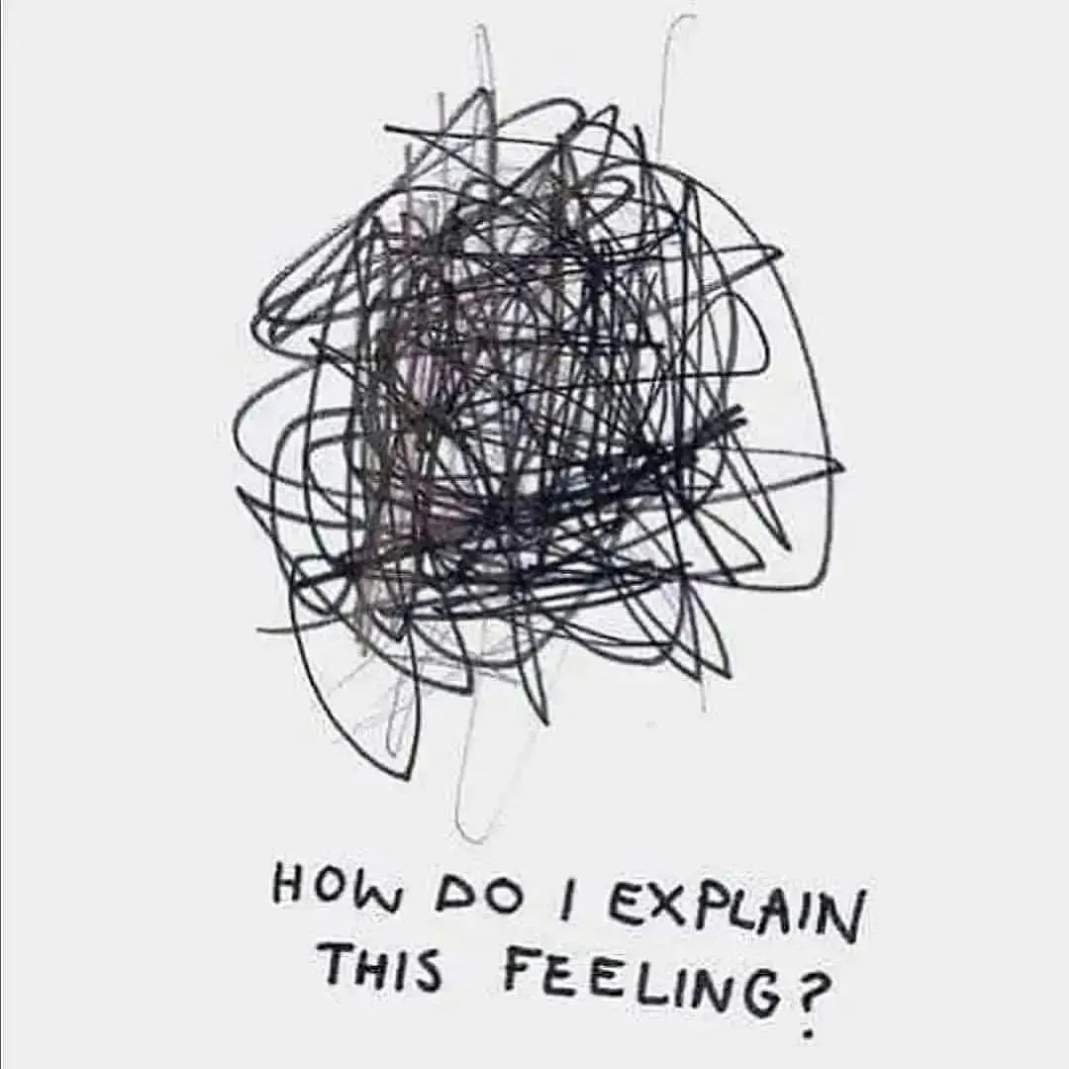 HOW DO I EXPLAIN
THIS FEELING?